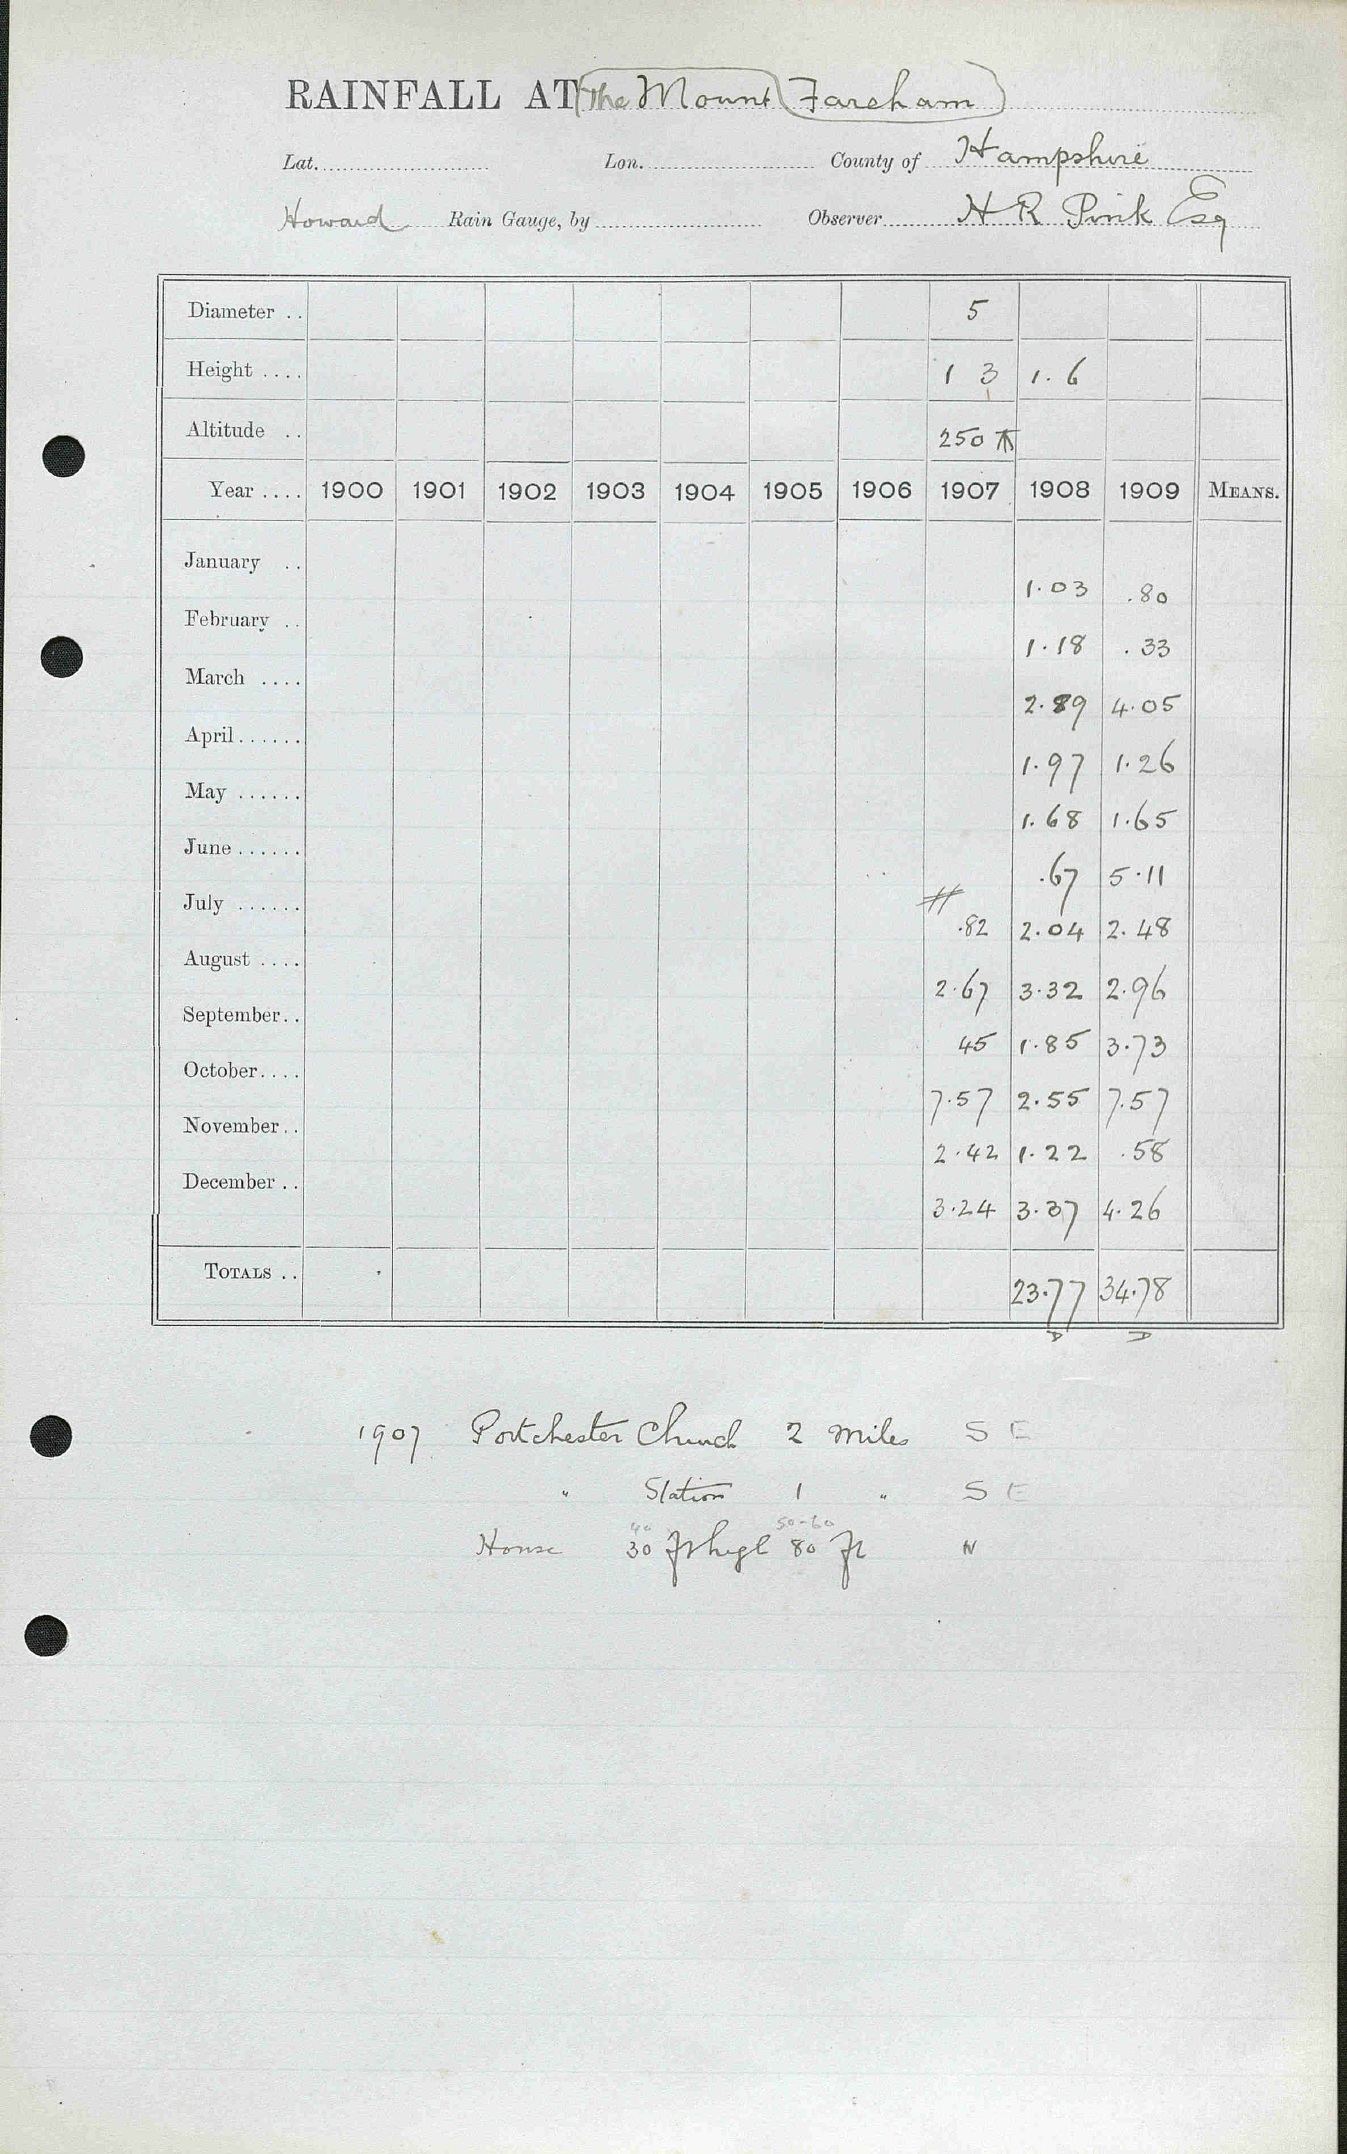 RAINFALL AT The Mount Fareham
Lat. Lon. County of Hampshire
Howard Rain Gauge, by Observer H R Pink Esq
Diameter .. 5
Height .... 1 3 1.6
Altitude .. 250
Year .... 1900 1901 1902 1903 1904 1905 1906 1907 1908 1909 MEANS.
January .. 1.03 .80
February .. 1.18 .33
March .... 2.89 4.05
April...... 1.97 1.26
May ...... 1.68 1.65
June ...... .67 5.11
July ...... .82 2.04 2.48
August .... 2.67 3.32 2.96
September.. 45 1.85 3.73
October.... 7.57 2.55 7.57
November.. 2.42 1.22 .58
December .. 3.24 3.37 4.26
TOTALS .. 23.77 34.78
D D
1907 Portchester Church 2 miles S E
" Station 1 " S E
40 50-60
House 30 ft high 80 ft N